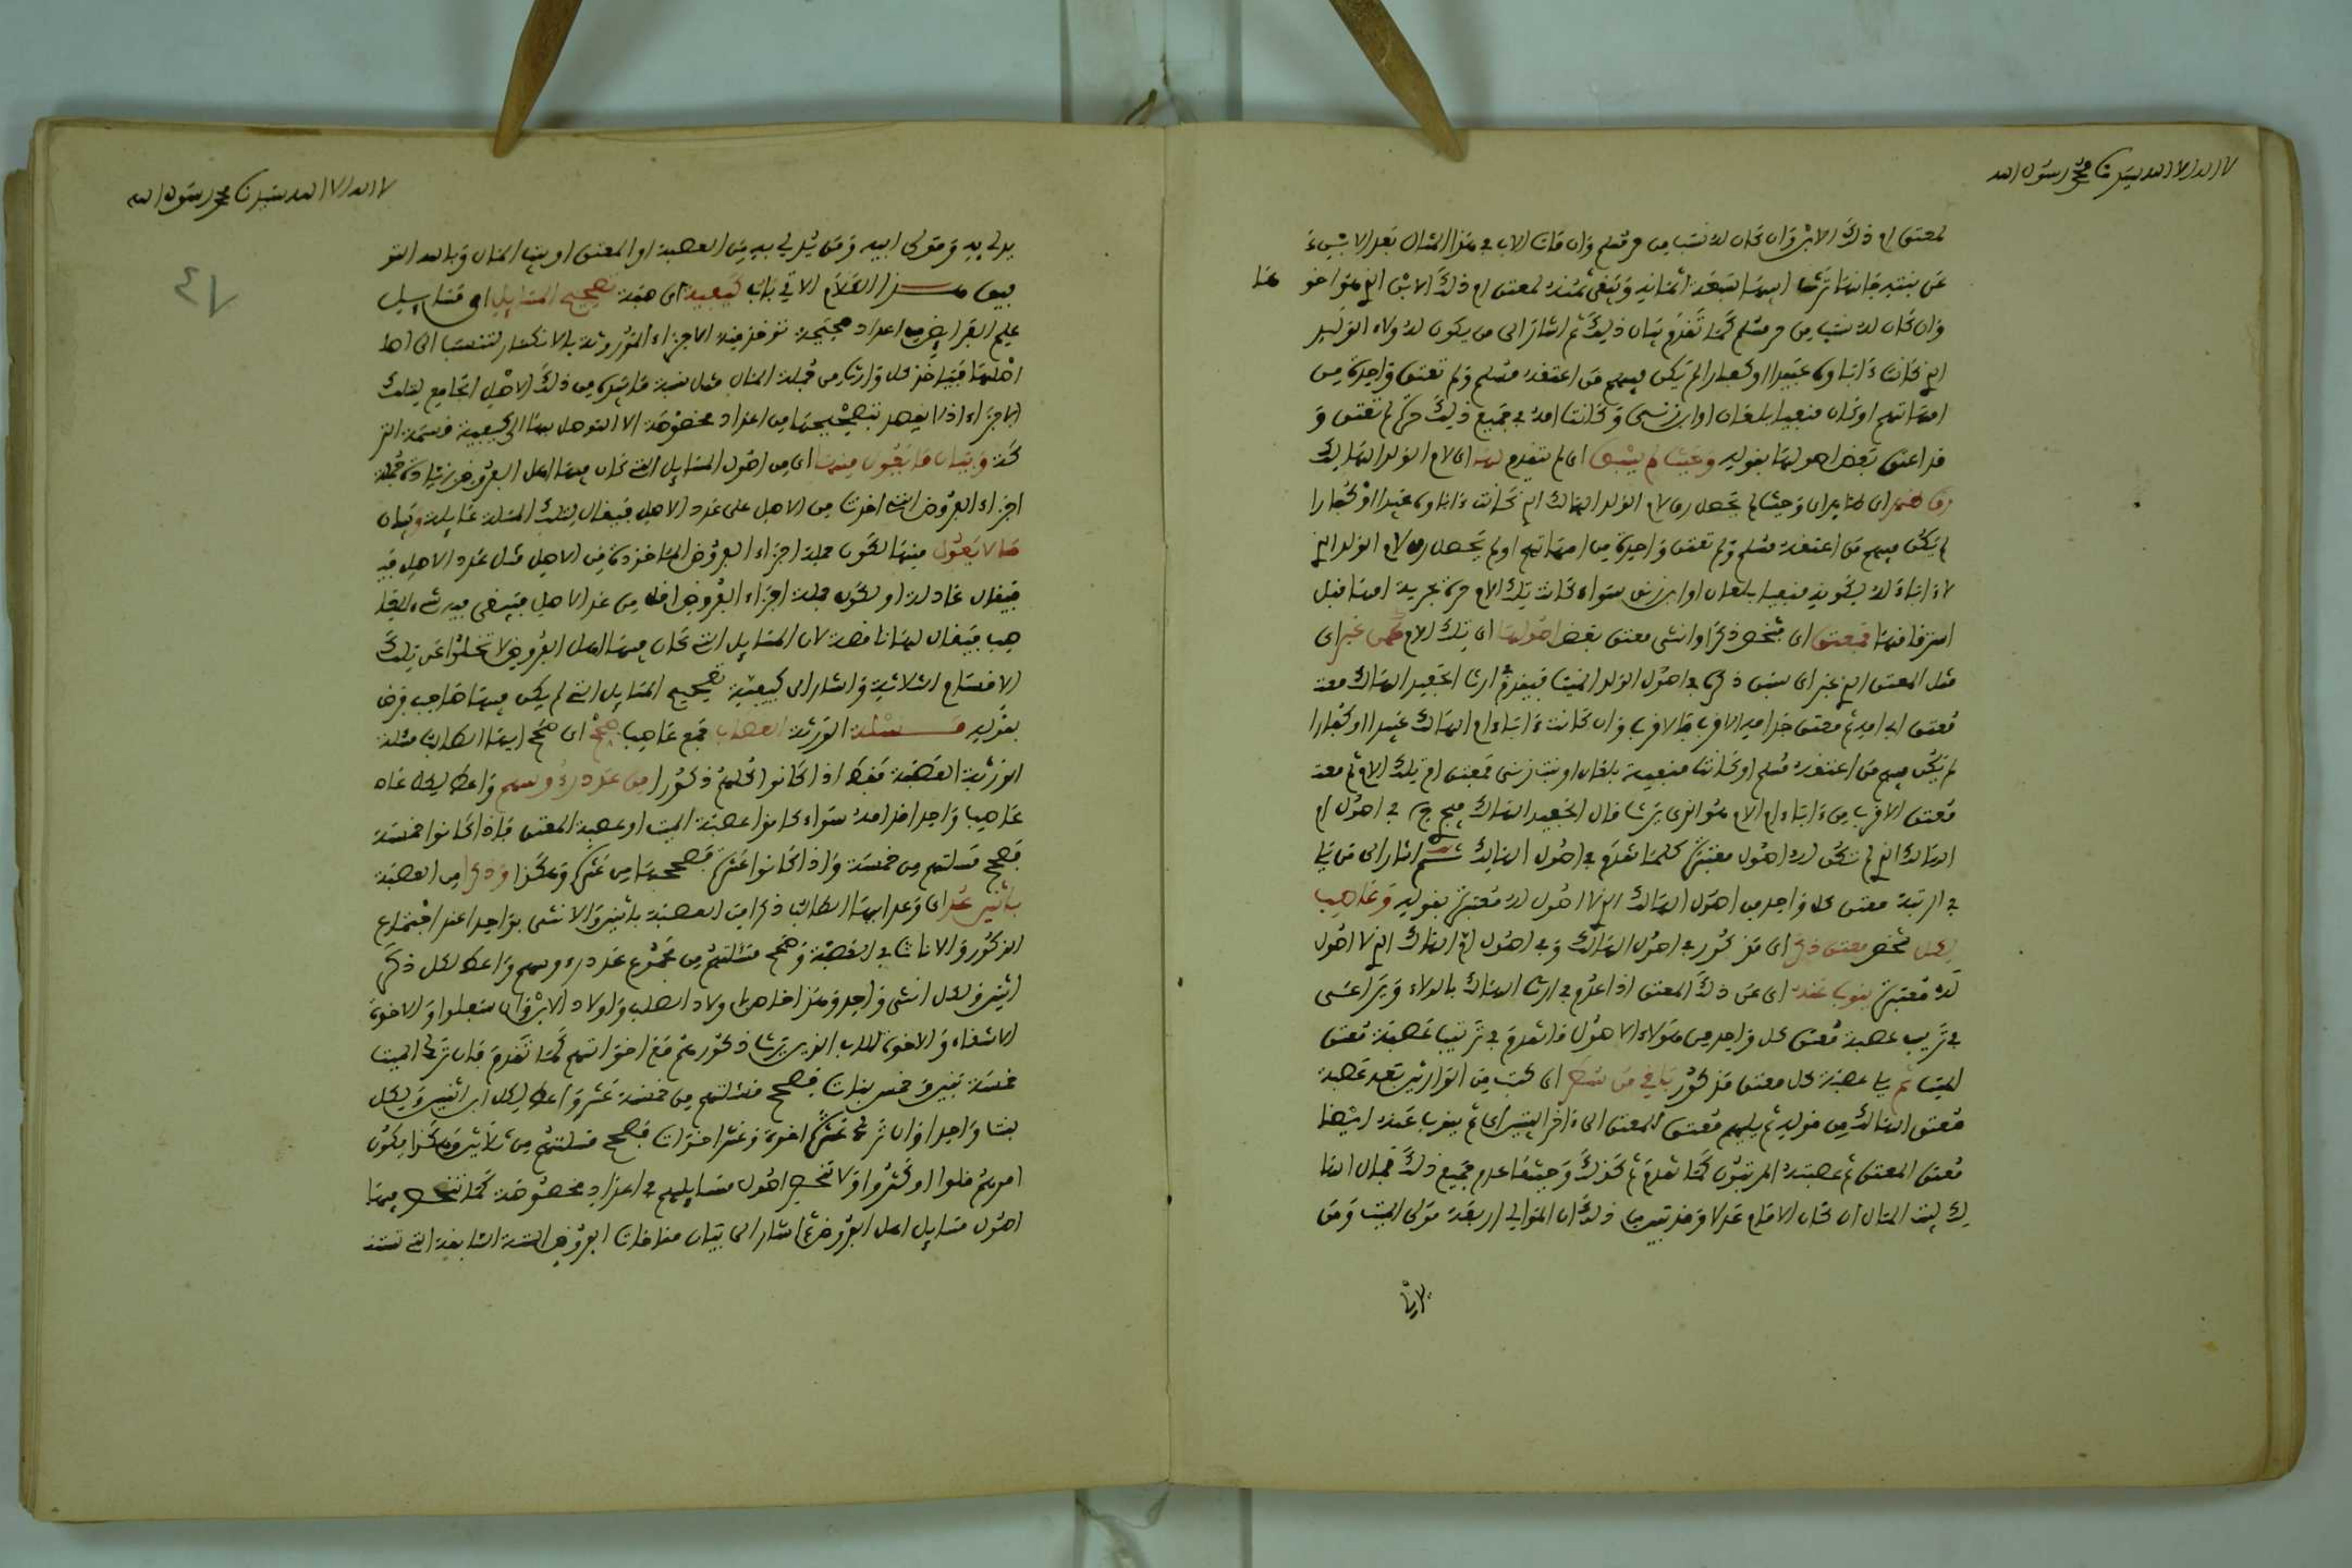 لا اله الا الله سيدنا محمد رسول الله
لمعتق ام ذلك الابن وان كان له نسب من حر مسلم وان مات الاب في هذا المثال بعد الابن
عن بنته فانها ترث ابيها سبعة اثمانه ويبقى ثمنه لمعتق ام ذلك الابن الذي هو اخوها
وان كان له نسب من حر مسلم كما تقدم بيان ذلك ثم اشار الى من يكون له ولاء الولد
الذي كانت ءاباوه عبيدا او كفارا لم يكن فيهم من اعتقه مسلم ولم تعتق واحدة من
امهاتهم او كان منفيا بلعان او ابن زنى وكانت امه في جميع ذلك حرة لم تعتق و
قد اعتق بعض اصولها بقوله وحيث لم يسبق اى لم يتقدم لها اى لام الولد الهالك
رق لام الولد الهالك الذي كانت ءاباوه عبيدا او كفارا
لم يكن فيهم من اعتقه مسلم ولم تعتق واحدة من امهاتهم او لم يحصل رق لام الولد الذي
لا ءاباء له لكونه منفيا بلعان او ابن زنى سواء كانت تلك الام حرة بحرية امها قبل
فمعتق اى شخص ذكرا او انثى معتق بعض اصولها اى تلك الام
مثل المعتق الذي غبر اى سبق ذكره في اصول الولد الميت فيقدم في ارث الحفيد الهالك معتق
معتق اب امه ثم معتق جد امه الاقرب فالاقرب وان كانت ءاباء ام الهالك عبيدا او كفارا
لم يكن فيهم من اعتقه مسلم او كانت منفية بلعان او بنت زنى فمعتق ام تلك الام ثم معتق
معتق الاقرب من ءاباء ام الام هو الذي يرث مال الحفيد الهالك
الهالك الذي لم تكن له اصول معتبرة كلما تقدم في اصول الهالك ثم اشار الى
في الرتبة معتق كل واحد من اصول الهالك الذي لا اصول له معتبرة بقوله وعاصب
لكل شخص معتق ذكر اى مذكور في اصول الهالك وفي اصول ام الهالك الذي لا اصول
له معتبرة ينوب عنه اى عن ذلك المعتق اذا عدم في ارث الهالك بالولاء ويراعى
في ترتيب عصبة معتق كل واحد من هولاء الاصول ما تقدم في ترتيب عصبة معتق
الميت ثم يا عصبة كل معتق مذكور اى كتب من الوارثين بعد عصبة
معتق الهالك من قوله ثم يليهم معتق المعتق الى ءاخر البيتين اى ثم ينوب عنه ايضا
معتق المعتق ثم عصبته المرتبون كما تقدم ثم كذلك وحيثما عدم جميع ذلك فمال الها
لك لبيت المال ان كان الامام عدلا وقد تبين من ذلك ان الموالي اربعة مولى الميت ومن
يدلى
لا اله الا الله سيدنا محمد رسول الله
٤٧
يدلى به ومولى ابيه ومن يدلي به من العصبة او المعتق او بيت المال وبالله التو
فيق هذا الكلام الاتي باب كيفية اى صفة تصحيح المسايل اى مسايل
علم الفرايض من اعداد صحيحة توخذ منه الاجزاء الموروثة بلا انكسار لتنسب الى
اصلها فياخذ كل وارث من جملة المال مثل نسبة ما بيده من ذلك الاصل الجامع لتلك
الاجزاء اذ لا يقصد بتصحيحها من اعداد مخصوصة الا التوصل بها الى كيفية قسمة التر
كة وبيان ما يعول منها اى من اصول المسايل التي كان فيها اهل الفروض زيادة جملة
اجزاء الفروض التي اخذت من الاصل على عدد الاصل فيقال لتلك المسئلة عايلة وبيان
ما لا يعول منها لكون جملة اجزاء الفروض الماخوذة من الاصل مثل عدد الاصل فيه
فيقال عادلة او لكون جملة اجزاء الفروض اقل من عدد الاصل فيبقى فيه شيء للعا
صب فيقال لها ناقصة لان المسايل التي كان فيها اهل الفروض لا تخلوا عن تلك
الاقسام الثلاثة واشار الى كيفية تصحيح المسايل التي لم يكن فيها صاحب فرض
بقوله مسئلة الورثة العصاب جمع عاصب صحح اى صحح ايها الطالب مسئلة
الورثة العصبة فقط اذا كانوا كلهم ذكورا من عدد رءوسهم واعط لكل
عاصب واحدا من سواء كانوا عصبة الميت او عصبة المعتق فاذا كانوا خمسة
فصحح مسئلتهم من خمسة واذا كانوا عشرة فصححها من عشرة وهكذا وذكرا من العصبة
باثنين عد اى وعد ايها الطالب ذكرا من العصبة باثنين والانثى بواحد اعند اجتماع
الذكور والاناث في العصبة وصحح مسئلتهم من مجموع عدد رءوسهم واعط لكل ذكر
اثنين ولكل انثى واحدا وهذا خاص باولاد الصلب واولاد الابن وان سفلوا والاخوة
الاشقاء والاخوة للاب الذين يرث ذكورهم مع اخواتهم كما تقدم فان ترك الميت
خمسة بنين وخمس بنات فصحح مسئلتهم من خمسة عشر واعط لكل ابن اثنين ولكل
بنت واحدا وان ترك عشرة اخوة وعشر اخوات فصحح مسئلتهم من ثلاثين وهكذا يكون
امرهم قلوا او كثروا ولا تنحصر اصول مسايلهم في اعداد مخصوصة كما تنحصر فيها
اصول مسايل اهل الفروض ثم اشار الى بيان مقامات الفروض الستة السابقة التي تستند